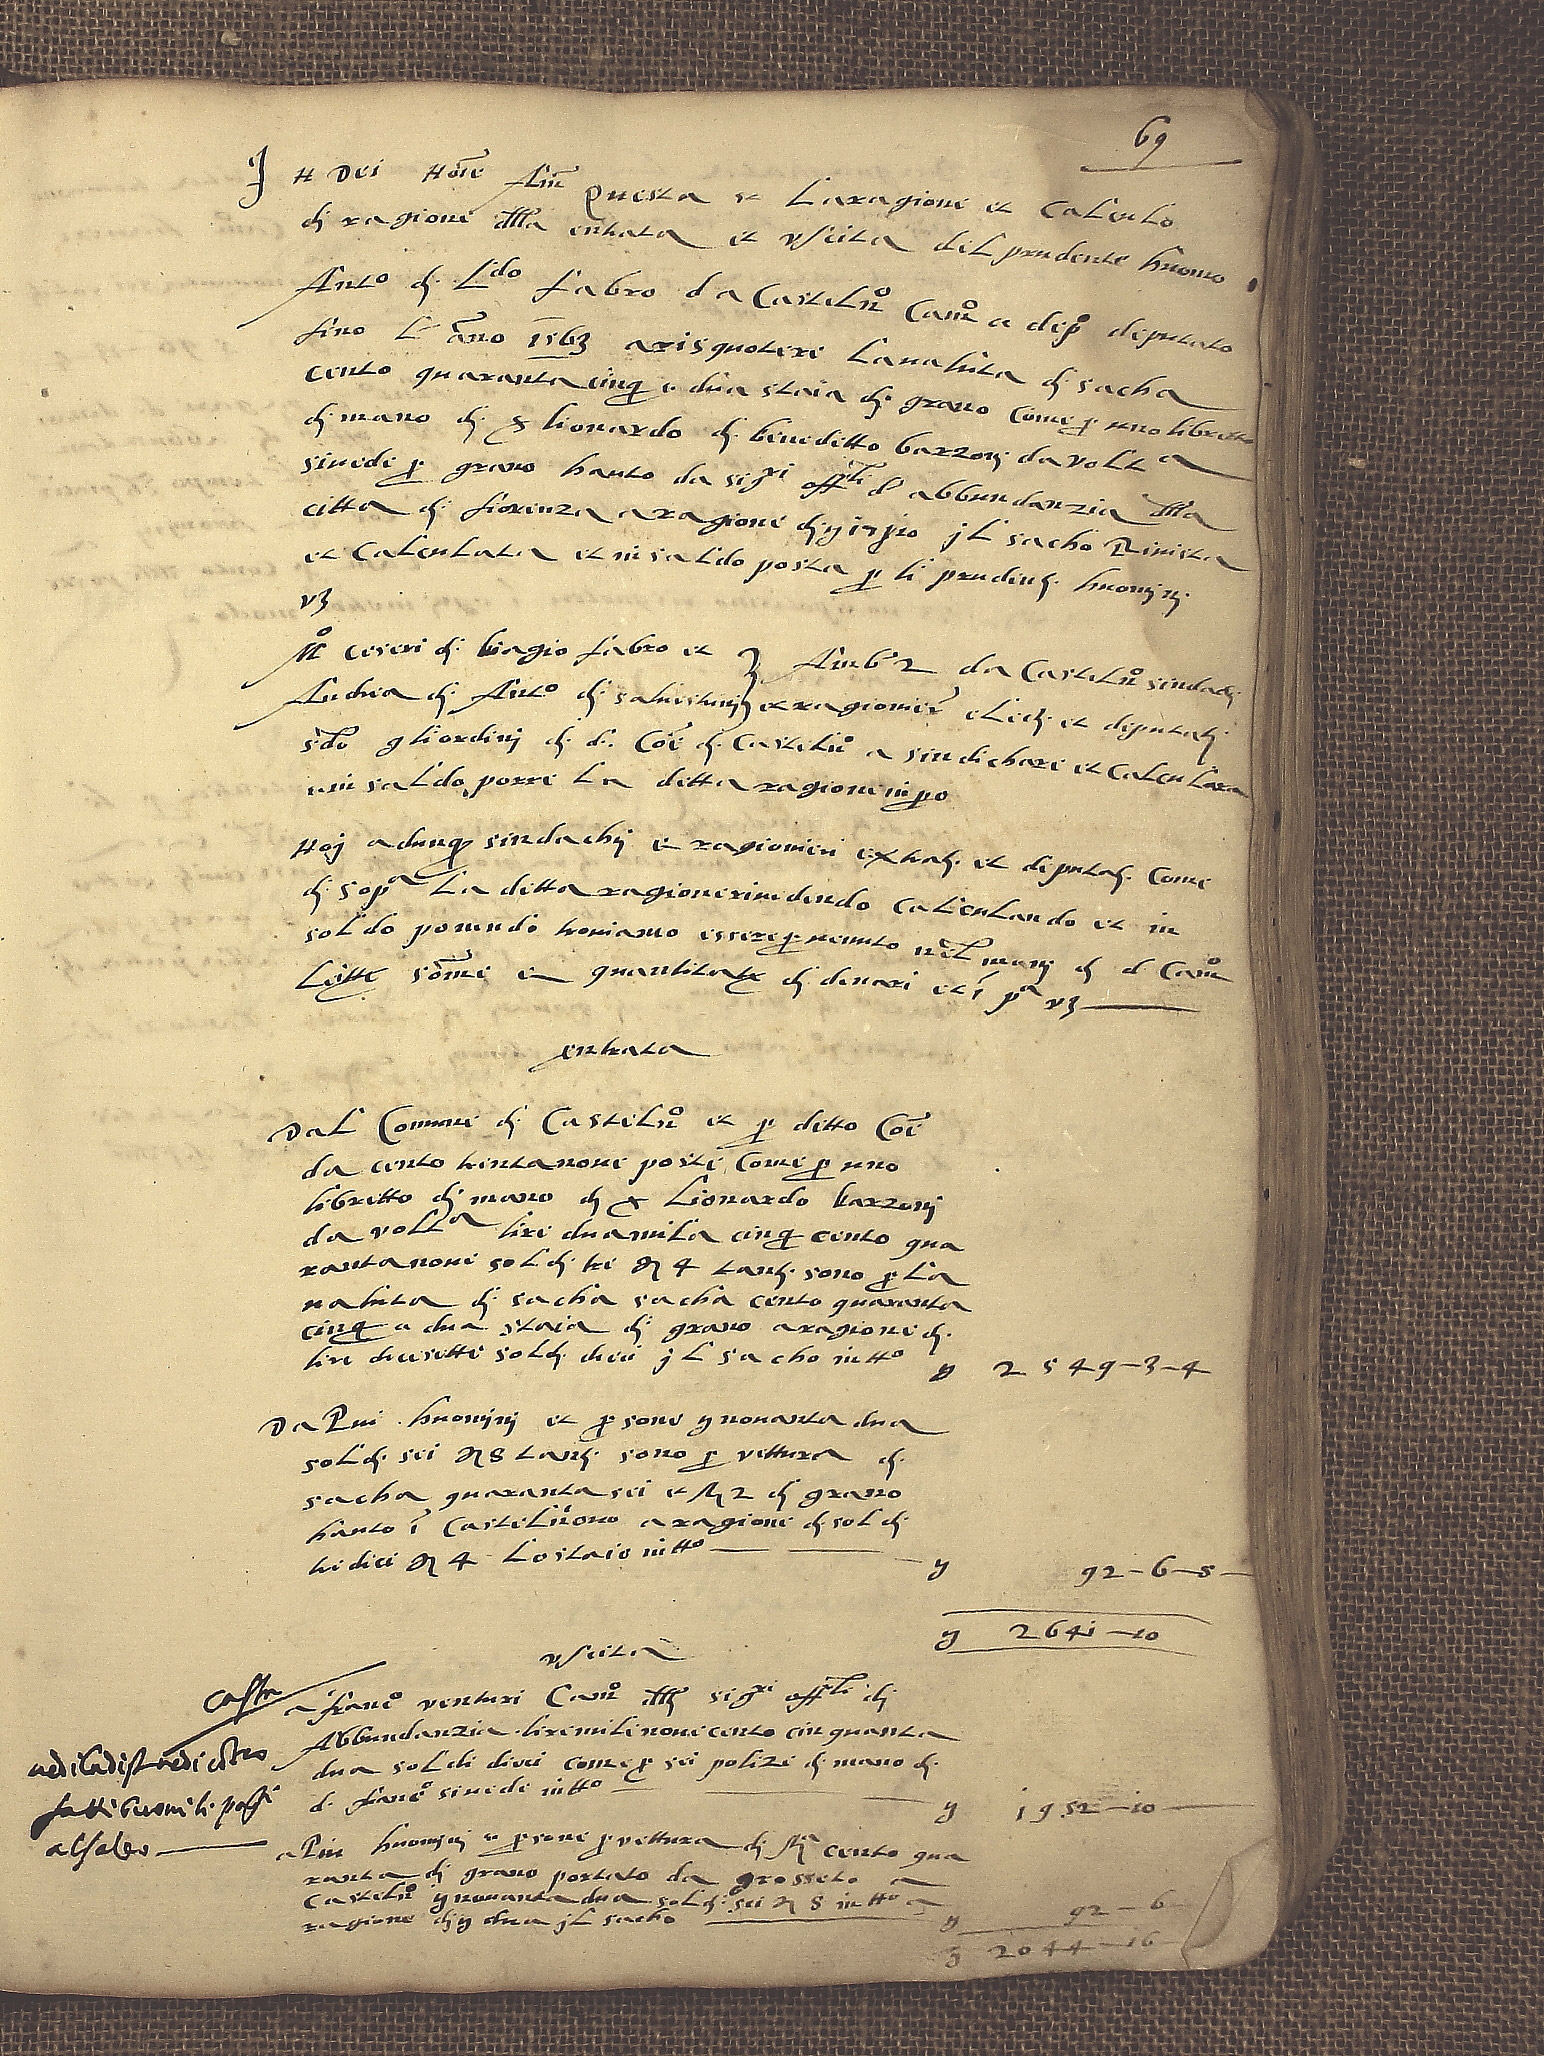 69
In Dei noīe Am̄ Questa e laragione et calculo
di ragione d̄lla entrata et uscita del prudente huomo
Antº di Ldo fabro da Castelnº Camº a depº deputato
fino l anno 1563 arisquotere laualuta di sacha
cento quarantacinq e dua staia di grano come p uno libretto
di mano di lionardo di benedetto barzonj da volta
siuede p grano hauto da sigri offli d abbundanzia d̄lla
citta di fiorenza aragione di il sacho Riuista
et Calculata et in saldo posta p li prudenti huominj
vz
Mº ceseri di biagio fabro et Amb 2 da Castelnº sindaci
Andrea di Antº di saluestrinj et ragionieri eletti et deputati
sdo gliordinj di d. Coē di Castelnº a sindichare et calculare
in saldo porre la detta ragione in
Noj adunq sindachj e ragionieri extrati et deputati come
di sopa la detta ragione riuedendo calculando et in
saldo ponendo trouiamo essere peruenuto nel manj di d Camº
le somme e quantita di denari et i pa vz
entrata
Dal Comune di Castelnº et p ditto Coē
da cento trentanoue poste come p uno
libretto di mano di Lionardo barzonj
da volta lire duamila cinq cento qua
rantanoue soldi tre 4 tanti sono p la
ualuta di sacha sacha cento quaranta
cinq e dua staia di grano aragione di
lire diciesette soldi dieci il sacho in ttº 2549-3-4
Da Piu huominj et psone nouanta dua
soldi sei 8 tanti sono p vettura di
sacha quarantasei et 2 di grano
hauto i Castelnuouo aragione di soldi
tredici 4 lo staio in ttº 92-6-8
2641-10
uscita
a francº venturi Camº d̄lli sigri offli di
Abbundanzia lire mille nouecento cinquanta
dua soldi dieci come p sei polize di mano di
d. francº siuede in ttº 1952-10
a Piu huominj e psone p vettura di cento qua
ranta di grano portato da grosseto a
Castelnº nouanta dua soldi sei 8 in ttº a
ragione di dua il sacho 92-6
2044-16
alsaldo